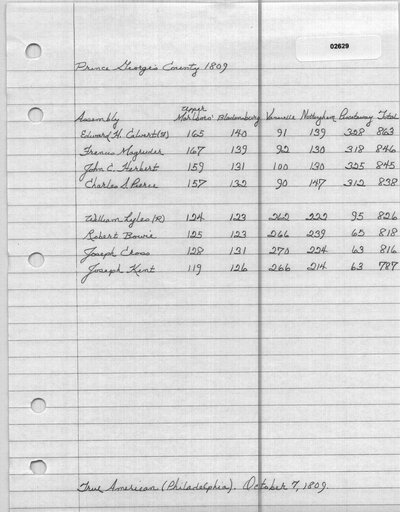 02629
Prince George's County 1809
Assembly Upper Marlboro' Bladensburg Vansville Nottingham Piscataway Total
Edward H. Calvert (F) 165 140 91 139 328 863
Francis Magruder 167 139 92 130 318 846
John C. Herbert 159 131 100 130 325 845
Charles S Pierce 157 132 90 147 312 838
William Lyles (R) 124 123 262 222 95 826
Robert Bowie 125 123 266 239 65 818
Joseph Cross 128 131 270 224 63 816
Joseph Kent 119 126 266 214 63 787
True American (Philadelphia). October 7, 1809.